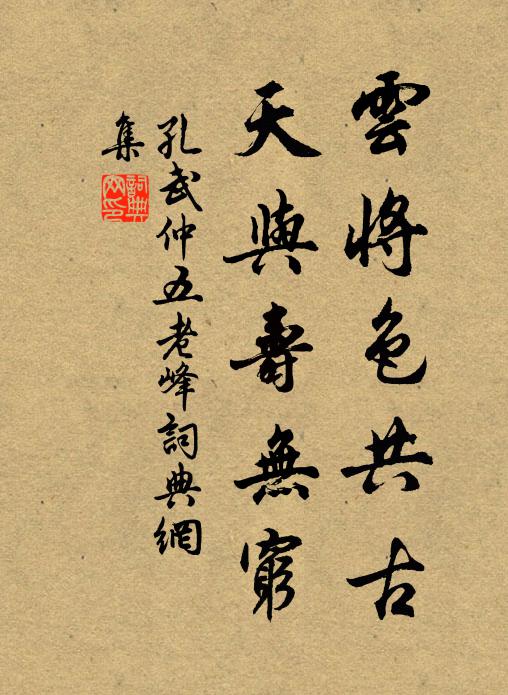 雲將色共古
天與壽無窮
孔武仲五老峰詞典網
集
詞典網印